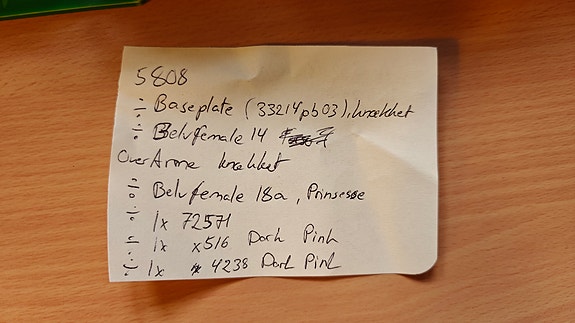 5808
÷ Baseplate (33214pb03), knækket
÷ Belvfemale 14
OverArme knækket
÷ Belvfemale 18a, Prinsesse
÷ 1x 72571
÷ 1x x516 Dark Pink
÷ 1x 4238 Dark Pink